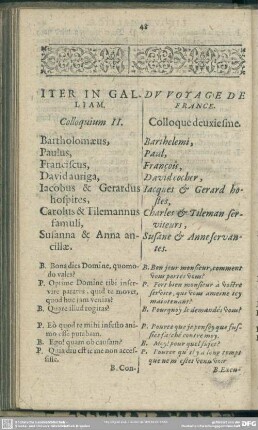 48
ITER IN GAL-
LIAM.
Colloquium II.
Bartholomæus,
Paulus,
Franciscus,
David auriga,
Iacobus & Gerardus
hospites,
Carolus & Tilemannus
famuli,
Susanna & Anna an-
cillæ.
B. Bona dies Domine, quomo-
do vales?
P. Optime Domine tibi inser-
vire paratus, quid te movet,
quod huc jam venias?
B. Quare illud rogitas?
P. Eò quod te mihi infesto ani-
mo esse putabam.
B. Ego? quam ob causam?
P. Quia diu est quod me non acces-
sisti.
B. Con-
DV VOYAGE DE
FRANCE.
Colloque deuxiesme.
Barthelemi,
Paul,
François,
David cocher,
Iacques & Gerard ho-
stes,
Charles & Tileman ser-
viteurs,
Susane & Anne servan-
tes.
B. Bon jour monsieur, comment
vous portez vous?
P. Fort bien monsieur à vostre
service, que vous ameine icy
maintenant?
B. Pourquoy le demandés vous?
P. Pource que je pensoy que fus-
siez fasché contre moy.
B. Moy? pour quel sujet?
P. Pource qu'il y a long temps
que ne m'estes venu voir.
B. Excu-